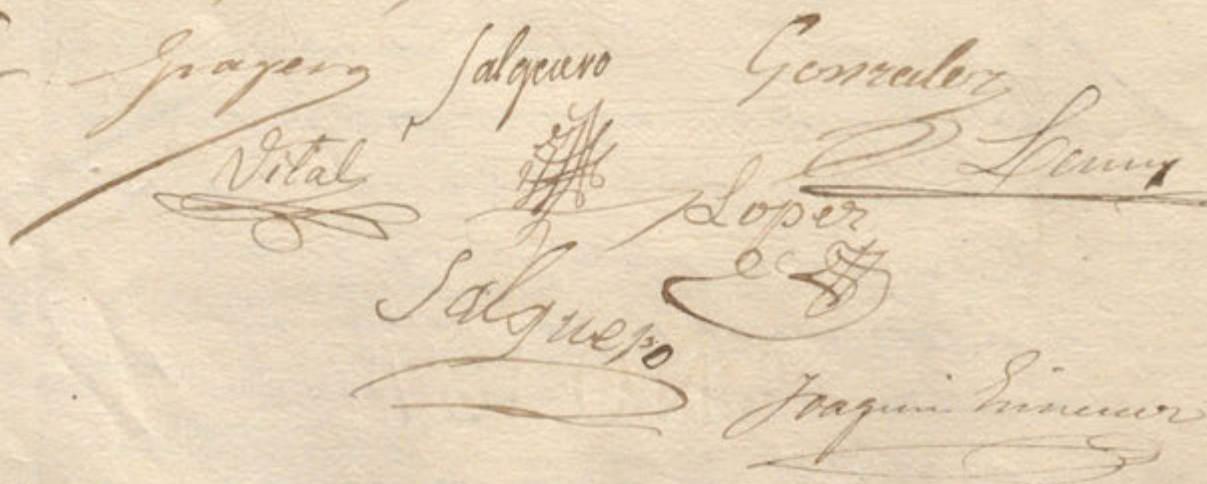 Gragera Salguero Gonzalez
Vital
Lopez
Salguero
Joaquin Gimenez